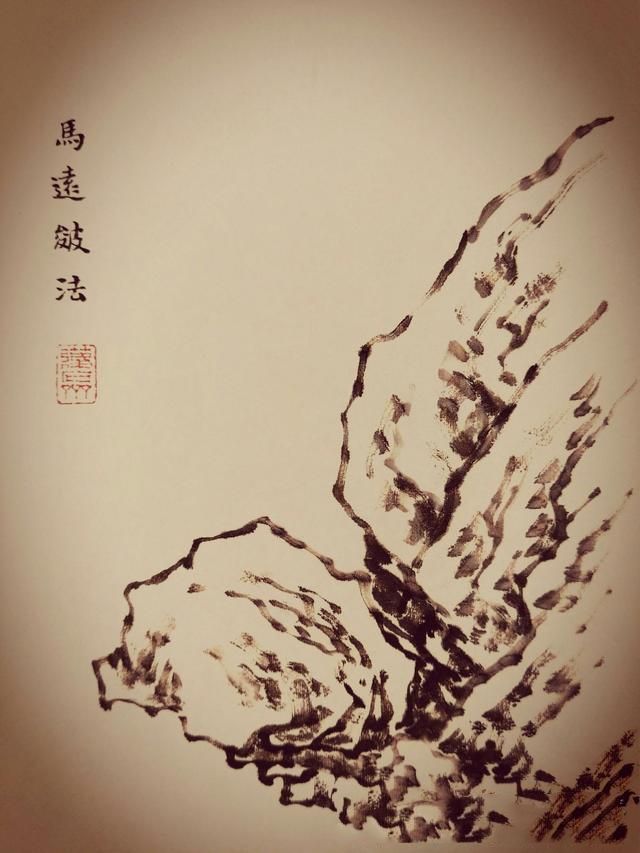 馬遠皴法